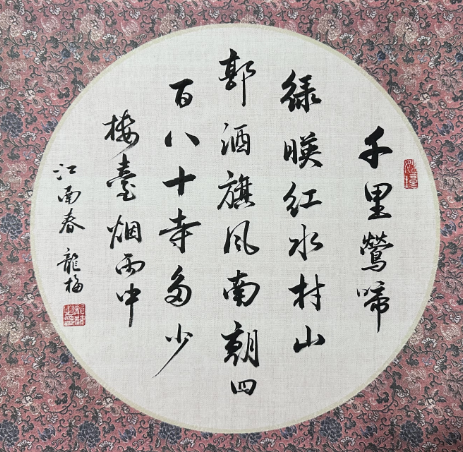 千里鶯啼
緑暎红水村山
郭酒旗风南朝四
百八十寺多少
楼臺烟雨中
江南春 龍梅